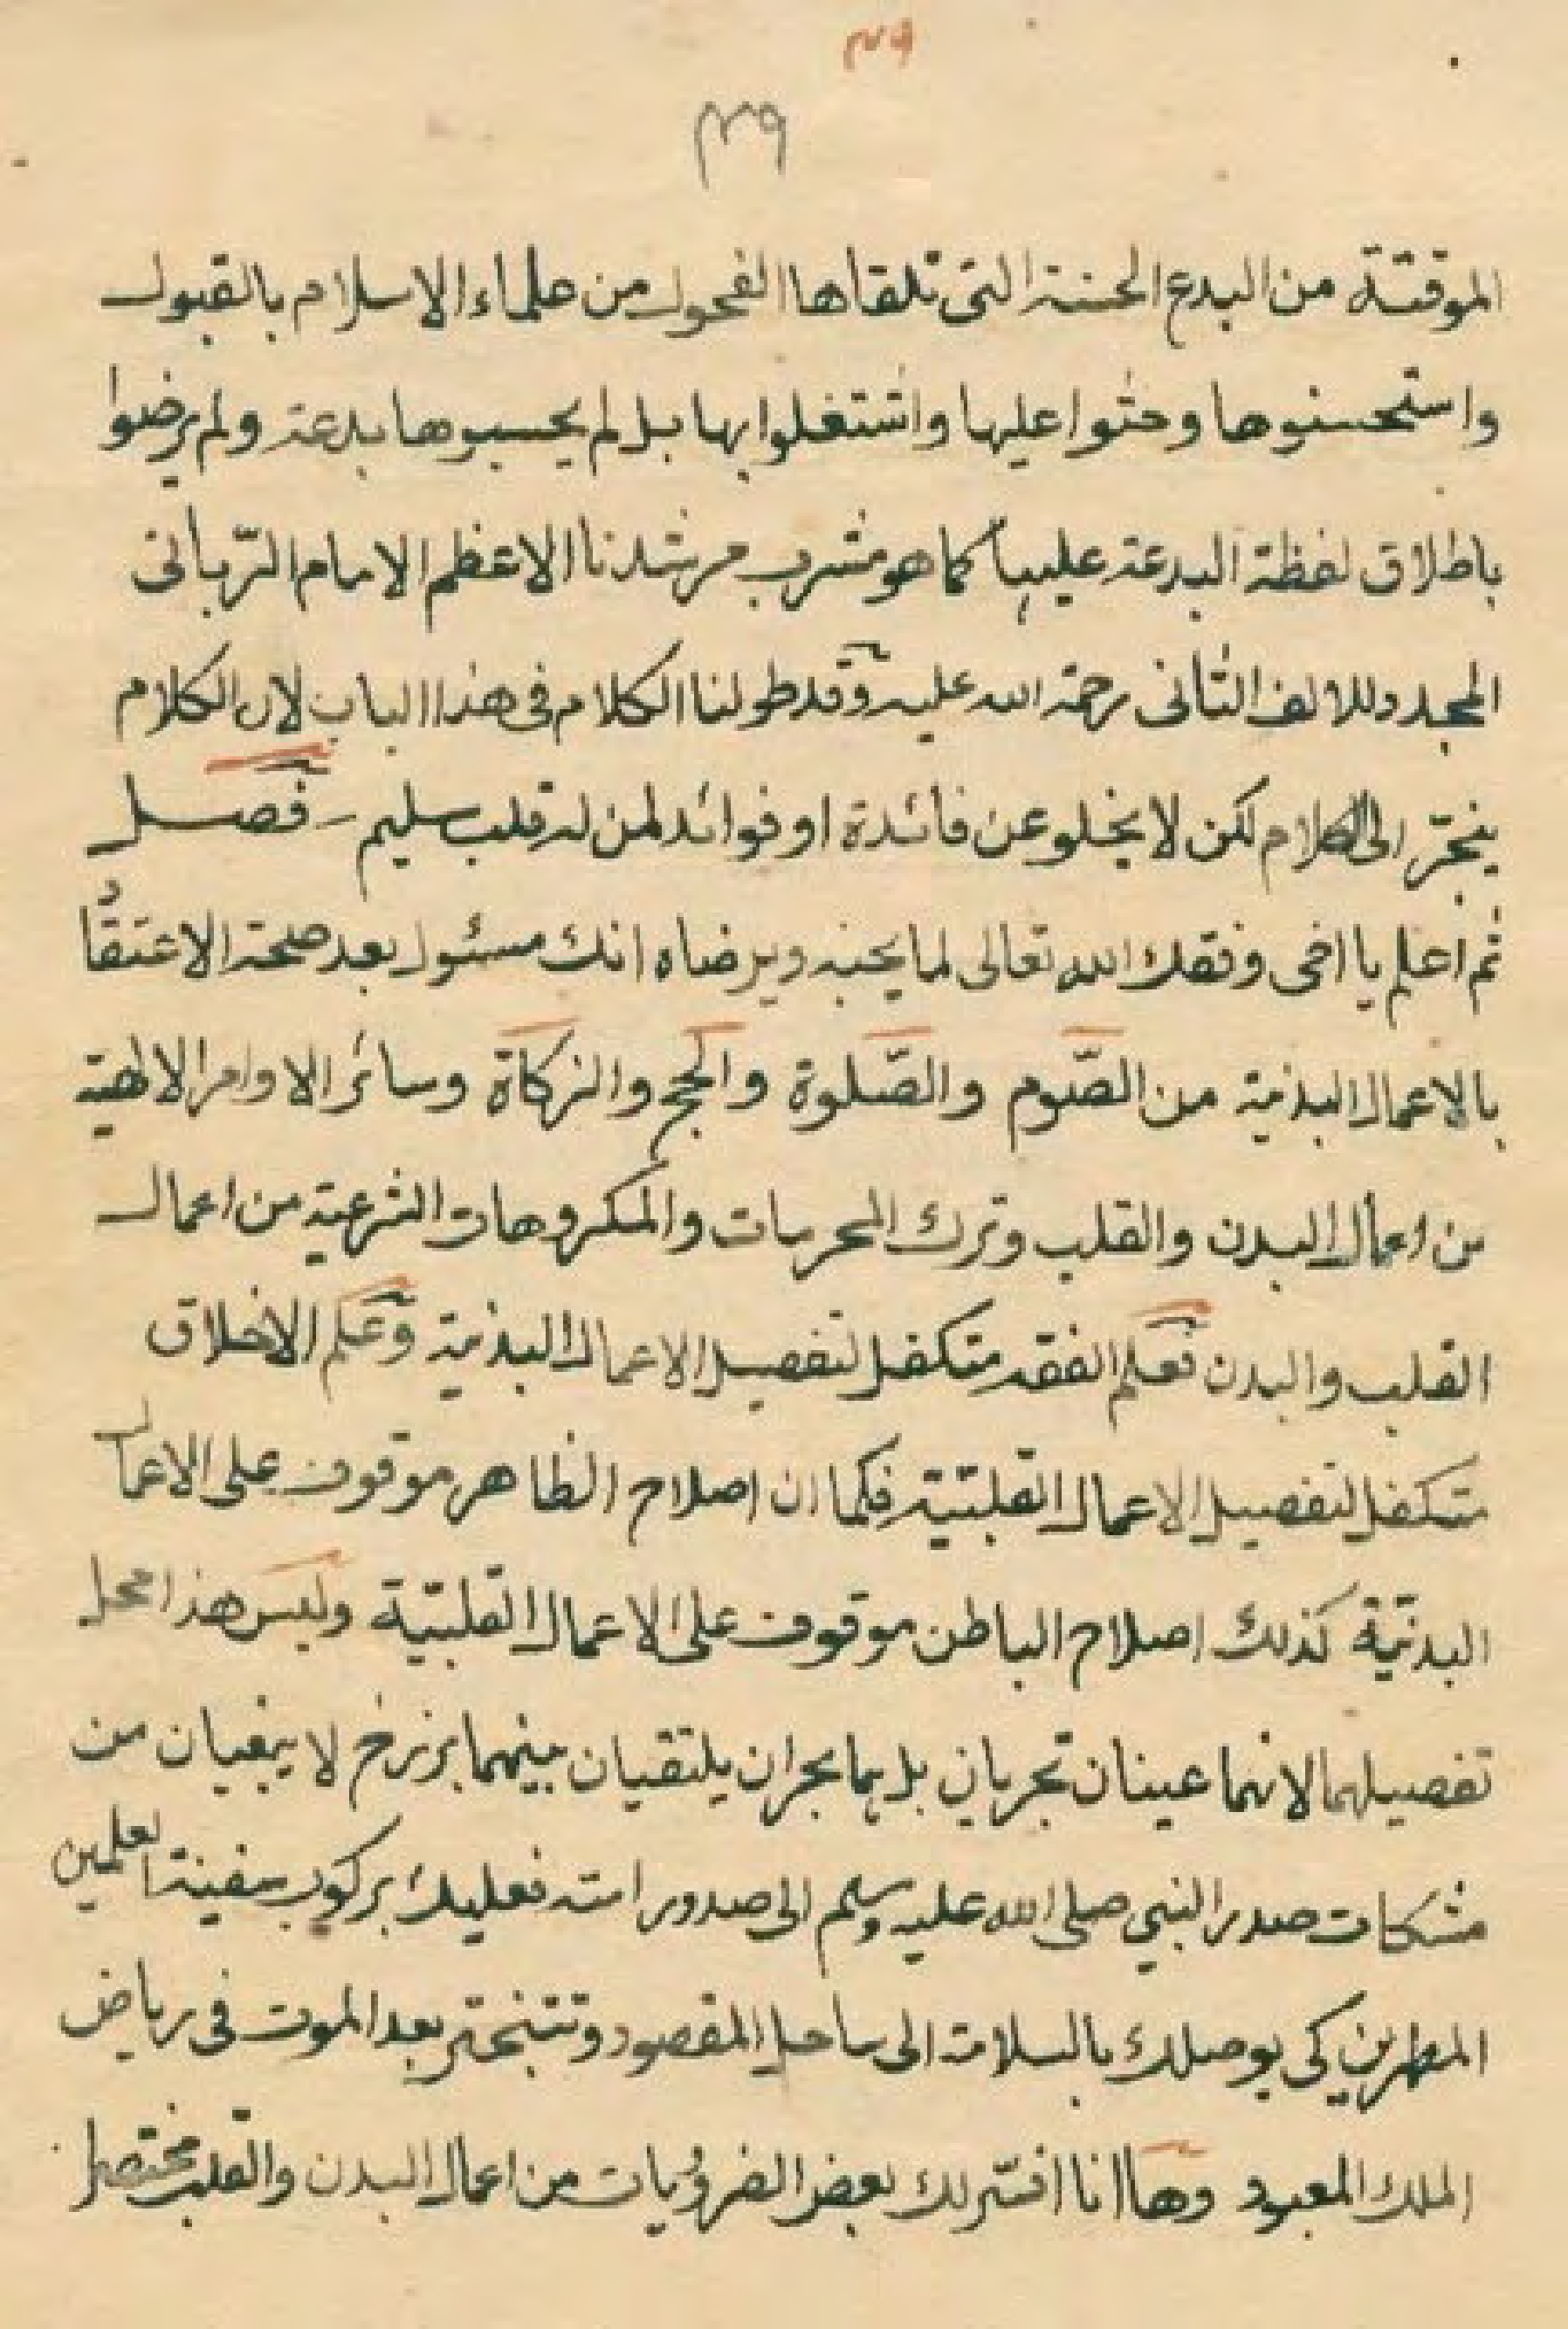 ٣٩
٣٩
الموقتة من البدع الحسنة التى تلقاها الفحول من علماء الاسلام بالقبول
واستحسنوها وحثوا عليها واشتغلوا بها بل لم يحسبوها بدعة ولم يرضوا
باطلاق لفظة البدعة عليها كما هو مشرب مرشدنا الاعظم الامام الرّبانى
المجدد للالف الثانى رحمة الله عليه وقد طولنا الكلام فى هذا الباب لان الكلام
ينجرّ الى الكلام لكن لا يخلو عن فائدة او فوائد لمن له قلب سليم - فصل
ثم اعلم يا اخى وفقك الله تعالى لما يحبه ويرضاه انك مسئول بعد صحة الاعتقاد
بالاعمال البدنية من الصّوم والصّلوة والحج والزكاة وسائر الاوامر الالهية
من اعمال البدن والقلب وترك المحرمات والمكروهات الشرعية من اعمال
القلب والبدن فعلم الفقه متكفل لتفصيل الاعمال البدنية وعلم الاخلاق
متكفل لتفصيل الاعمال القلبيّة فكما ان اصلاح الظاهر موقوف على الاعمال
البدنيّة كذلك اصلاح الباطن موقوف على الاعمال القلبيّة وليس هذا محل
تفصيلهما لانهما عينان تجريان بل هما بحران يلتقيان بينهما برزخ لا يبغيان من
مشكات صدر النبي صلى الله عليه وسلم الى صدور امته فعليك بركوب سفينة العلمين
المطهرين كى يوصلك بالسلامة الى ساحل المقصود وتتبختر بعد الموت فى رياض
الملك المعبود وها انا افسّر لك بعض الضروريات من اعمال البدن والقلب مختصرا